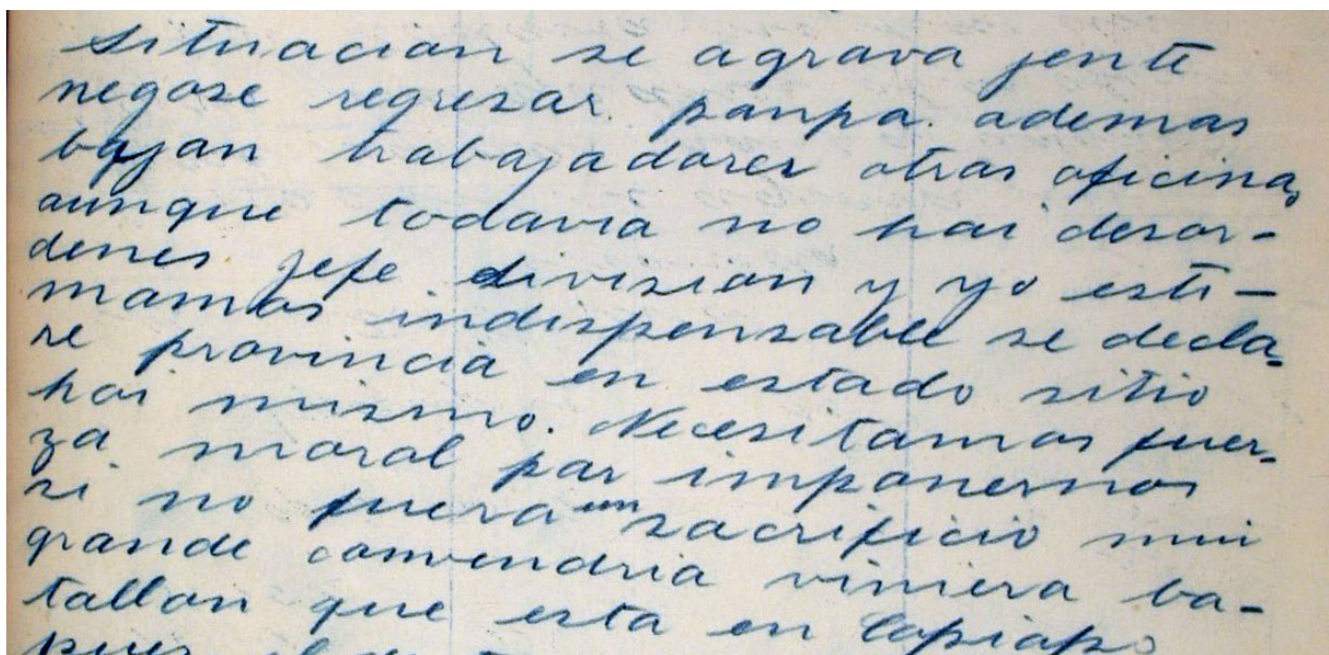 situacion se agrava jente
negase regresar panpa ademas
bajan trabajadores otras oficinas
aunque todavia no hai desor-
denes jefe division y yo esti-
mamos indispensable se decla-
re provincia en estado sitio
hoi mismo. Necesitamos fuer-
za moral par imponernos
si no fuera un sacrificio mui
grande convendria viniera ba-
tallon que esta en Copiapo
pues